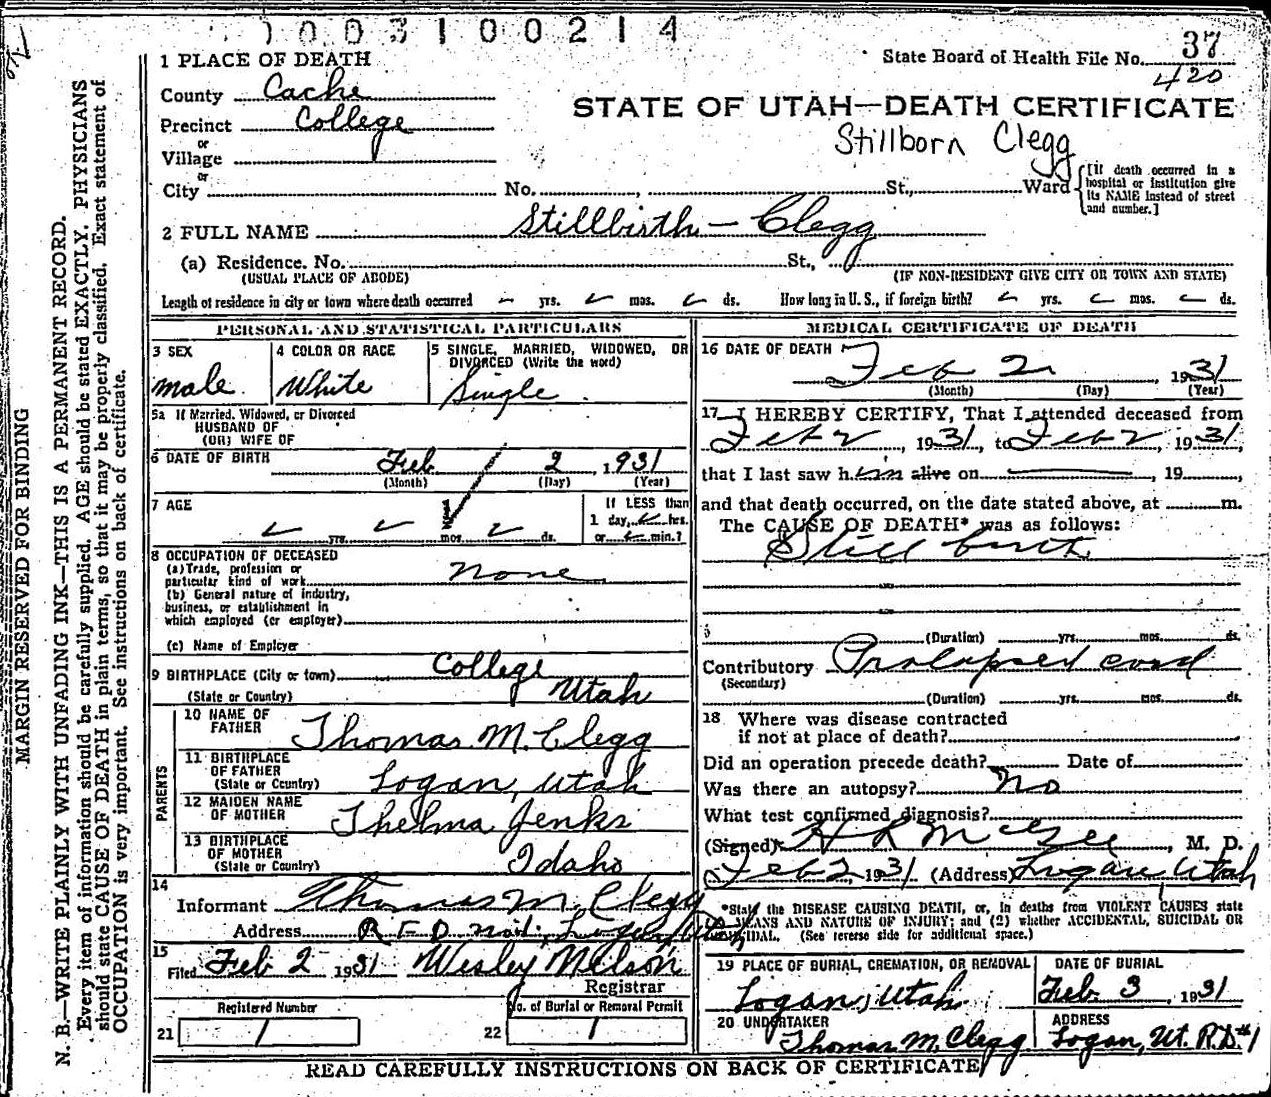 1003100214
State Board of Health File No. 37
420
1 PLACE OF DEATH
County Cache
STATE OF UTAH—DEATH CERTIFICATE
Precinct College
or
Stillborn Clegg
Village
or
City No. , St., Ward
[If death occurred in a hospital or institution give its NAME instead of street and number.]
2 FULL NAME Stillbirth - Clegg
(a) Residence. No. St.,
(USUAL PLACE OF ABODE) (IF NON-RESIDENT GIVE CITY OR TOWN AND STATE)
Length of residence in city or town where death occurred yrs. mos. ds. How long in U. S., if foreign birth? yrs. mos. ds.
PERSONAL AND STATISTICAL PARTICULARS
3 SEX
male
4 COLOR OR RACE
White
5 SINGLE, MARRIED, WIDOWED, OR
DIVORCED (Write the word)
Single
5a If Married, Widowed, or Divorced
HUSBAND OF
(OR) WIFE OF
6 DATE OF BIRTH Feb 2, 1931
(Month) (Day) (Year)
7 AGE
yrs. mos. ds.
If LESS than
1 day, hrs.
or min.?
8 OCCUPATION OF DECEASED
(a) Trade, profession or
particular kind of work none
(b) General nature of industry,
business, or establishment in
which employed (or employer)
(c) Name of Employer
9 BIRTHPLACE (City or town) College
(State or Country) Utah
PARENTS
10 NAME OF
FATHER Thomas M. Clegg
11 BIRTHPLACE
OF FATHER
(State or Country) Logan, Utah
12 MAIDEN NAME
OF MOTHER Thelma Jenks
13 BIRTHPLACE
OF MOTHER
(State or Country) Idaho
14
Informant Thomas M. Clegg
Address R F D no 1, Logan
15
Filed Feb 2, 1931 Wesley Nelson
Registrar
Registered Number
21 1
No. of Burial or Removal Permit
22 1
MEDICAL CERTIFICATE OF DEATH
16 DATE OF DEATH
Feb 2, 1931
(Month) (Day) (Year)
17 I HEREBY CERTIFY, That I attended deceased from
Feb 2, 1931, to Feb 2, 1931,
that I last saw him alive on , 19 ,
and that death occurred, on the date stated above, at m.
The CAUSE OF DEATH* was as follows:
Still birth
(Duration) yrs. mos. ds.
Contributory Prolapsed cord
(Secondary)
(Duration) yrs. mos. ds.
18 Where was disease contracted
if not at place of death?
Did an operation precede death? Date of
Was there an autopsy? No
What test confirmed diagnosis?
(Signed) H R McGee, M. D.
Feb 2, 1931 (Address) Logan, Utah
*State the DISEASE CAUSING DEATH, or, in deaths from VIOLENT CAUSES state
MEANS AND NATURE OF INJURY; and (2) whether ACCIDENTAL, SUICIDAL OR
(See reverse side for additional space.)
19 PLACE OF BURIAL, CREMATION, OR REMOVAL
Logan, Utah
DATE OF BURIAL
Feb. 3, 1931
20 UNDERTAKER
Thomas M. Clegg
ADDRESS
Logan, Ut. R.D. #1
READ CAREFULLY INSTRUCTIONS ON BACK OF CERTIFICATE
MARGIN RESERVED FOR BINDING
N. B.—WRITE PLAINLY WITH UNFADING INK—THIS IS A PERMANENT RECORD.
Every item of information should be carefully supplied. AGE should be stated EXACTLY. PHYSICIANS
should state CAUSE OF DEATH in plain terms, so that it may be properly classified. Exact statement of
OCCUPATION is very important. See instructions on back of certificate.